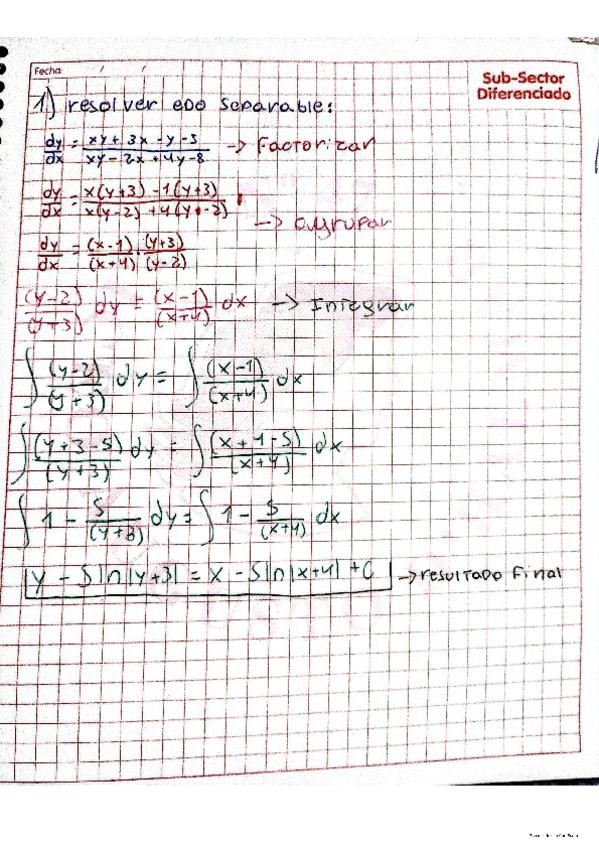 Fecha: / /
Sub-Sector
Diferenciado
1) resolver EDO Separable:
dy/dx = xy + 3x - y - 3 / xy - 2x + 4y - 8 -> Factorizar
dy/dx = x(y+3) - 1(y+3) / x(y-2) + 4(y-2)
-> agrupar
dy/dx = (x-1)/(x+4) · (y+3)/(y-2)
(y-2)/(y+3) dy = (x-1)/(x+4) dx -> Integrar
∫ (y-2)/(y+3) dy = ∫ (x-1)/(x+4) dx
∫ (y+3-5)/(y+3) dy = ∫ (x+4-5)/(x+4) dx
∫ 1 - 5/(y+3) dy = ∫ 1 - 5/(x+4) dx
y - 5 ln|y+3| = x - 5 ln|x+4| + C -> resultado Final